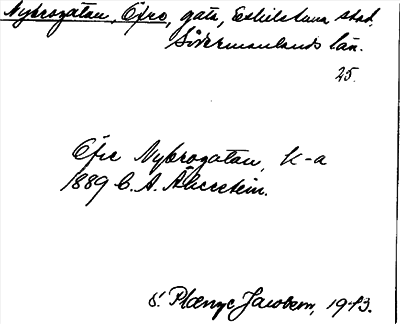 Nybrogatan, Öfre, gata, Eskilstuna stad,
Södermanlands län.
25.
Öfre Nybrogatan, K-a
1889 C. A. Åberstein.
S. Jacobsen, 1943.